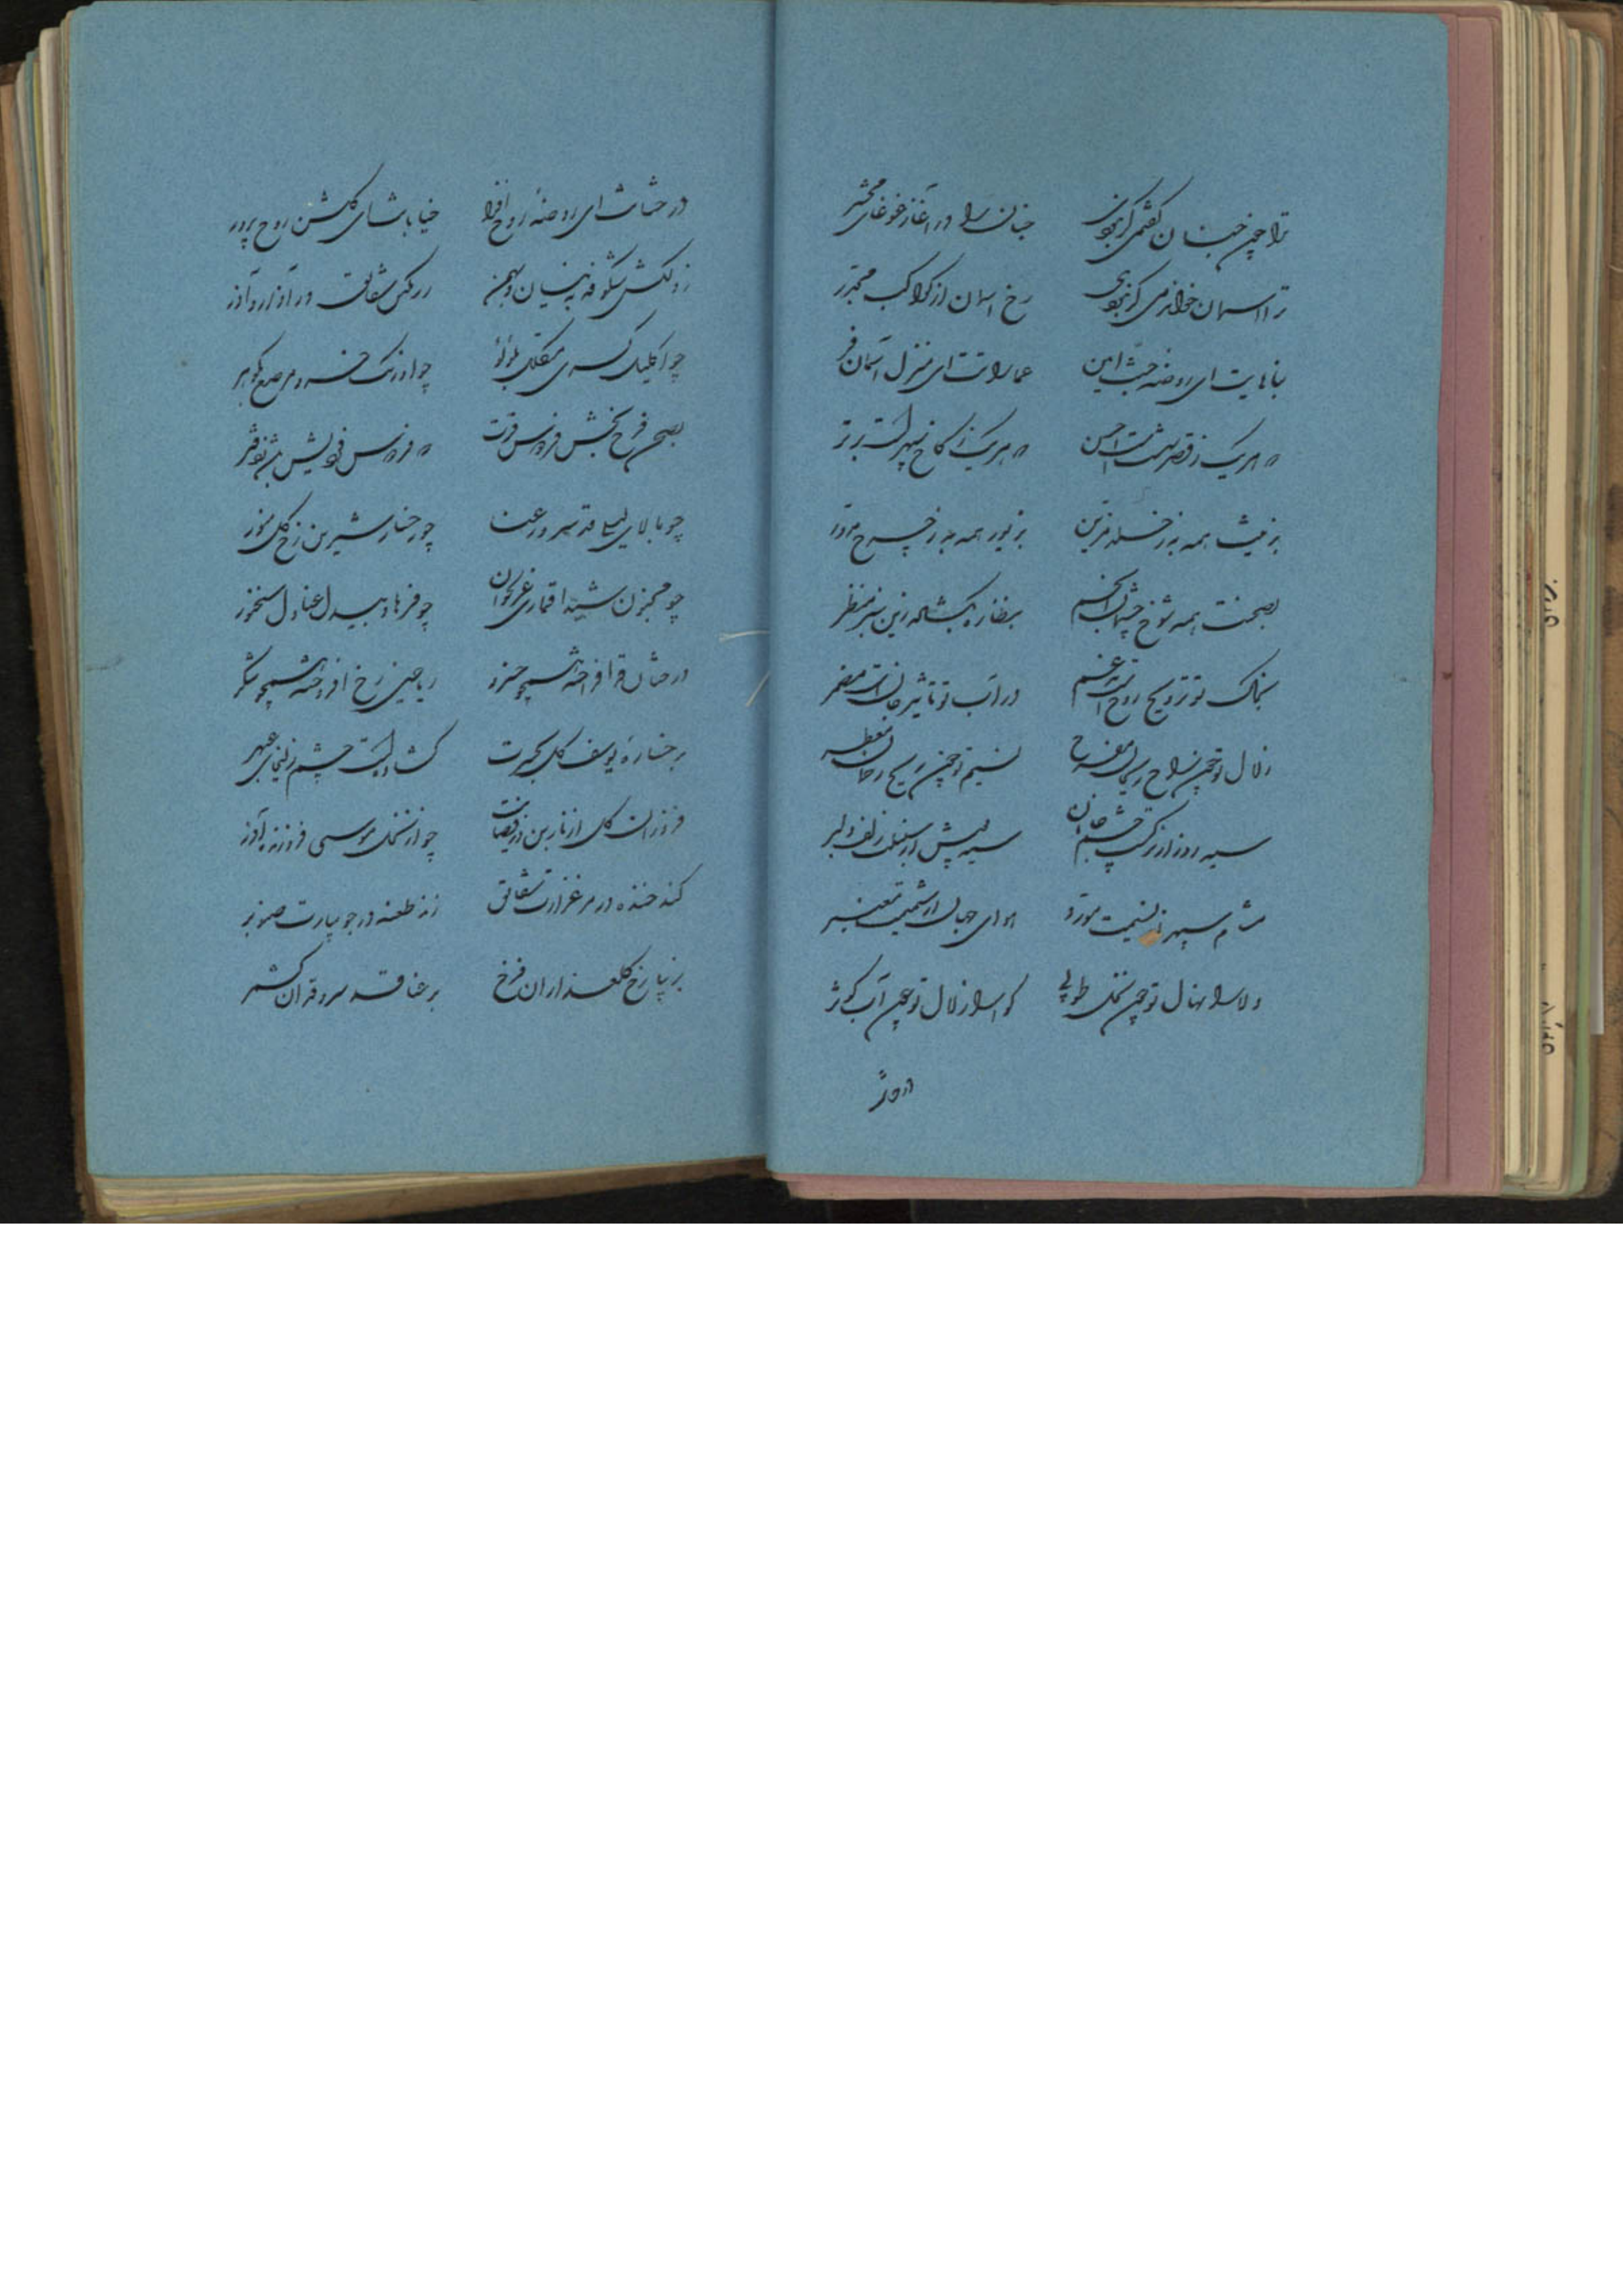 ترا چون جنان گفتمی گر نبودی جنان را در آغاز غوغای محشر
ترا آسمان خواندمی گر نبودی رخ آسمان از کواکب مجدر
بناهایت ای روضه جنت آیین عماراتت ای منزل آسمان فر
هر یک ز قصر بهشت احسن هر یک از کاخ سپهر است برتر
بزینت همه به ز خلد مزین بزیور همه به ز چرخ مدور
بصحنت همه شوخ چشمان انجم بنظاره بگشاده زین سبز منظر
بخاک تو ترویح روح است مدغم در آب تو تاثیر جان است مضمر
زلال تو چون راح ریحان مفرح نسیم تو چون ریح ریحان معطر
سیه روز از نرگست چشم جانان سیه پیش از سنبلت زلف دلبر
مشام سپهر از نسیمت مورد هوای جهان از شمیمت معنبر
ولا را نهال تو چون نخل طوبی گوارا زلال تو چون آب کوثر
درختانت ای روضه روح افزا خیابانت ای گلشن روح پرور
ز دلکش شکوفه به نیسان و بهمن ز رنگین شقایق در آذار و آذر
چو اکلیل کسری مکلل بلؤلؤ چو اورنگ خسرو مرصع بگوهر
بصحن فرح بخش فردوس فرت
چو بالای لیلی قد سرو رعنا چو رخسار شیرین رخ گل منور
چو مجنون شیدا قماری غزلخوان چو فرهاد بیدل عنادل سخنور
درختان قد افراخته همچو خیزر ریاحین رخ افروخته همچو
برخساره یوسف گل بگیرت گشاده است چشم زلیخای عبهر
فروزان گل از نارین فروزنده آذر
کند خنده در مرغزارت شقایق زند طعنه در جویبارت صنوبر
بزیبا رخ گلعذاران فرخ برعنا قد سرو قدان کشمر
درختا